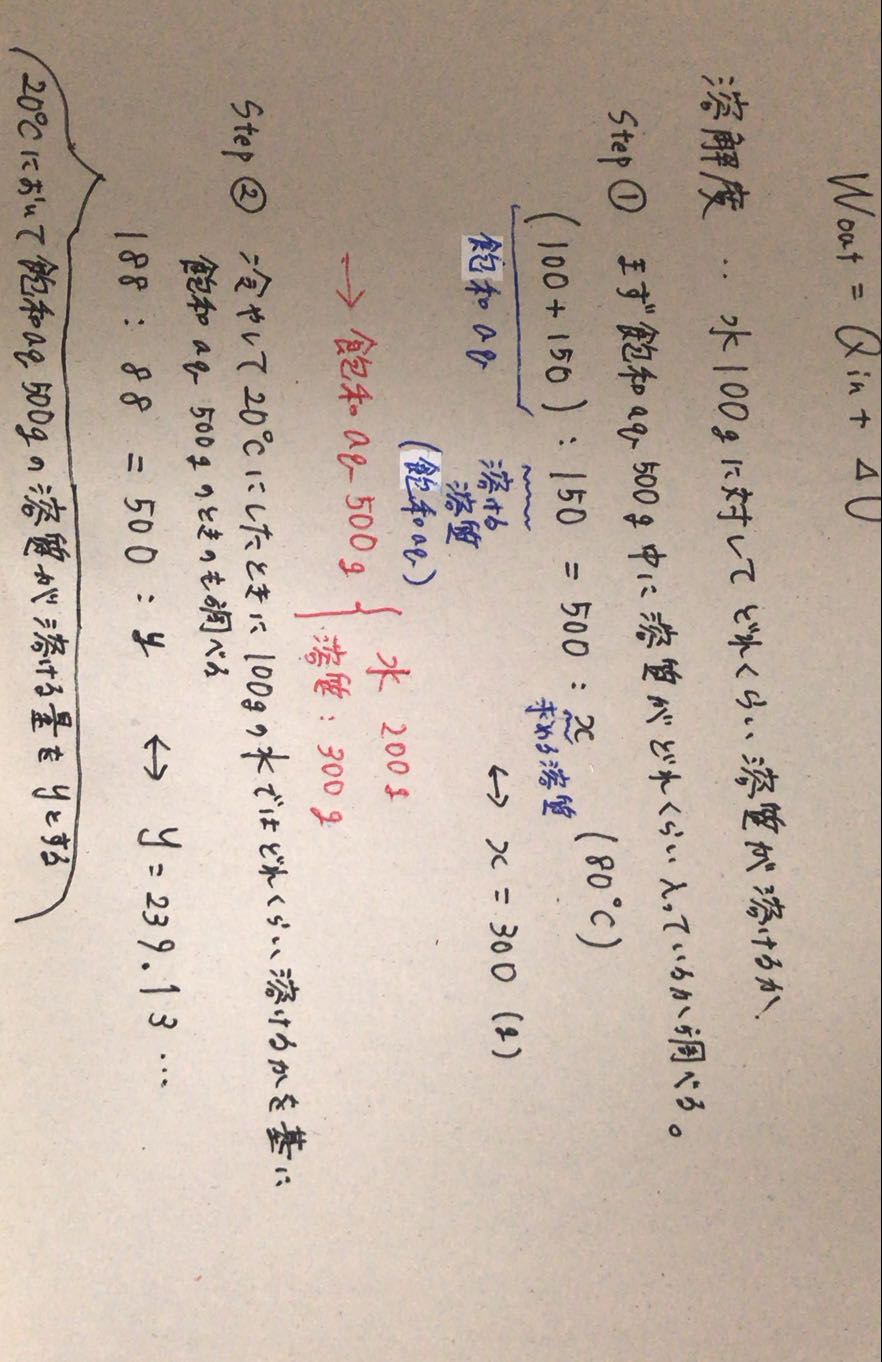 Wout = Qin + ΔU
溶解度 ‥ 水100gに対してどれくらい溶質が溶けるか、
Step ① まず飽和aq 500g中に溶質がどれくらい入っているか調べる。
(80℃)
(100+150) : 150 = 500 : x ↔ x = 300 (g)
飽和aq
溶ける溶質
求める溶質
(飽和aq)
→ 飽和aq 500g { 水 200g
溶質 : 300g
Step ② 冷やして20℃にしたときに100gの水ではどれくらい溶けるかを基に
飽和aq 500gのときのも調べる
188 : 88 = 500 : y ↔ y = 239.13 …
(20℃において飽和aq 500gの溶質が溶ける量をyとする)